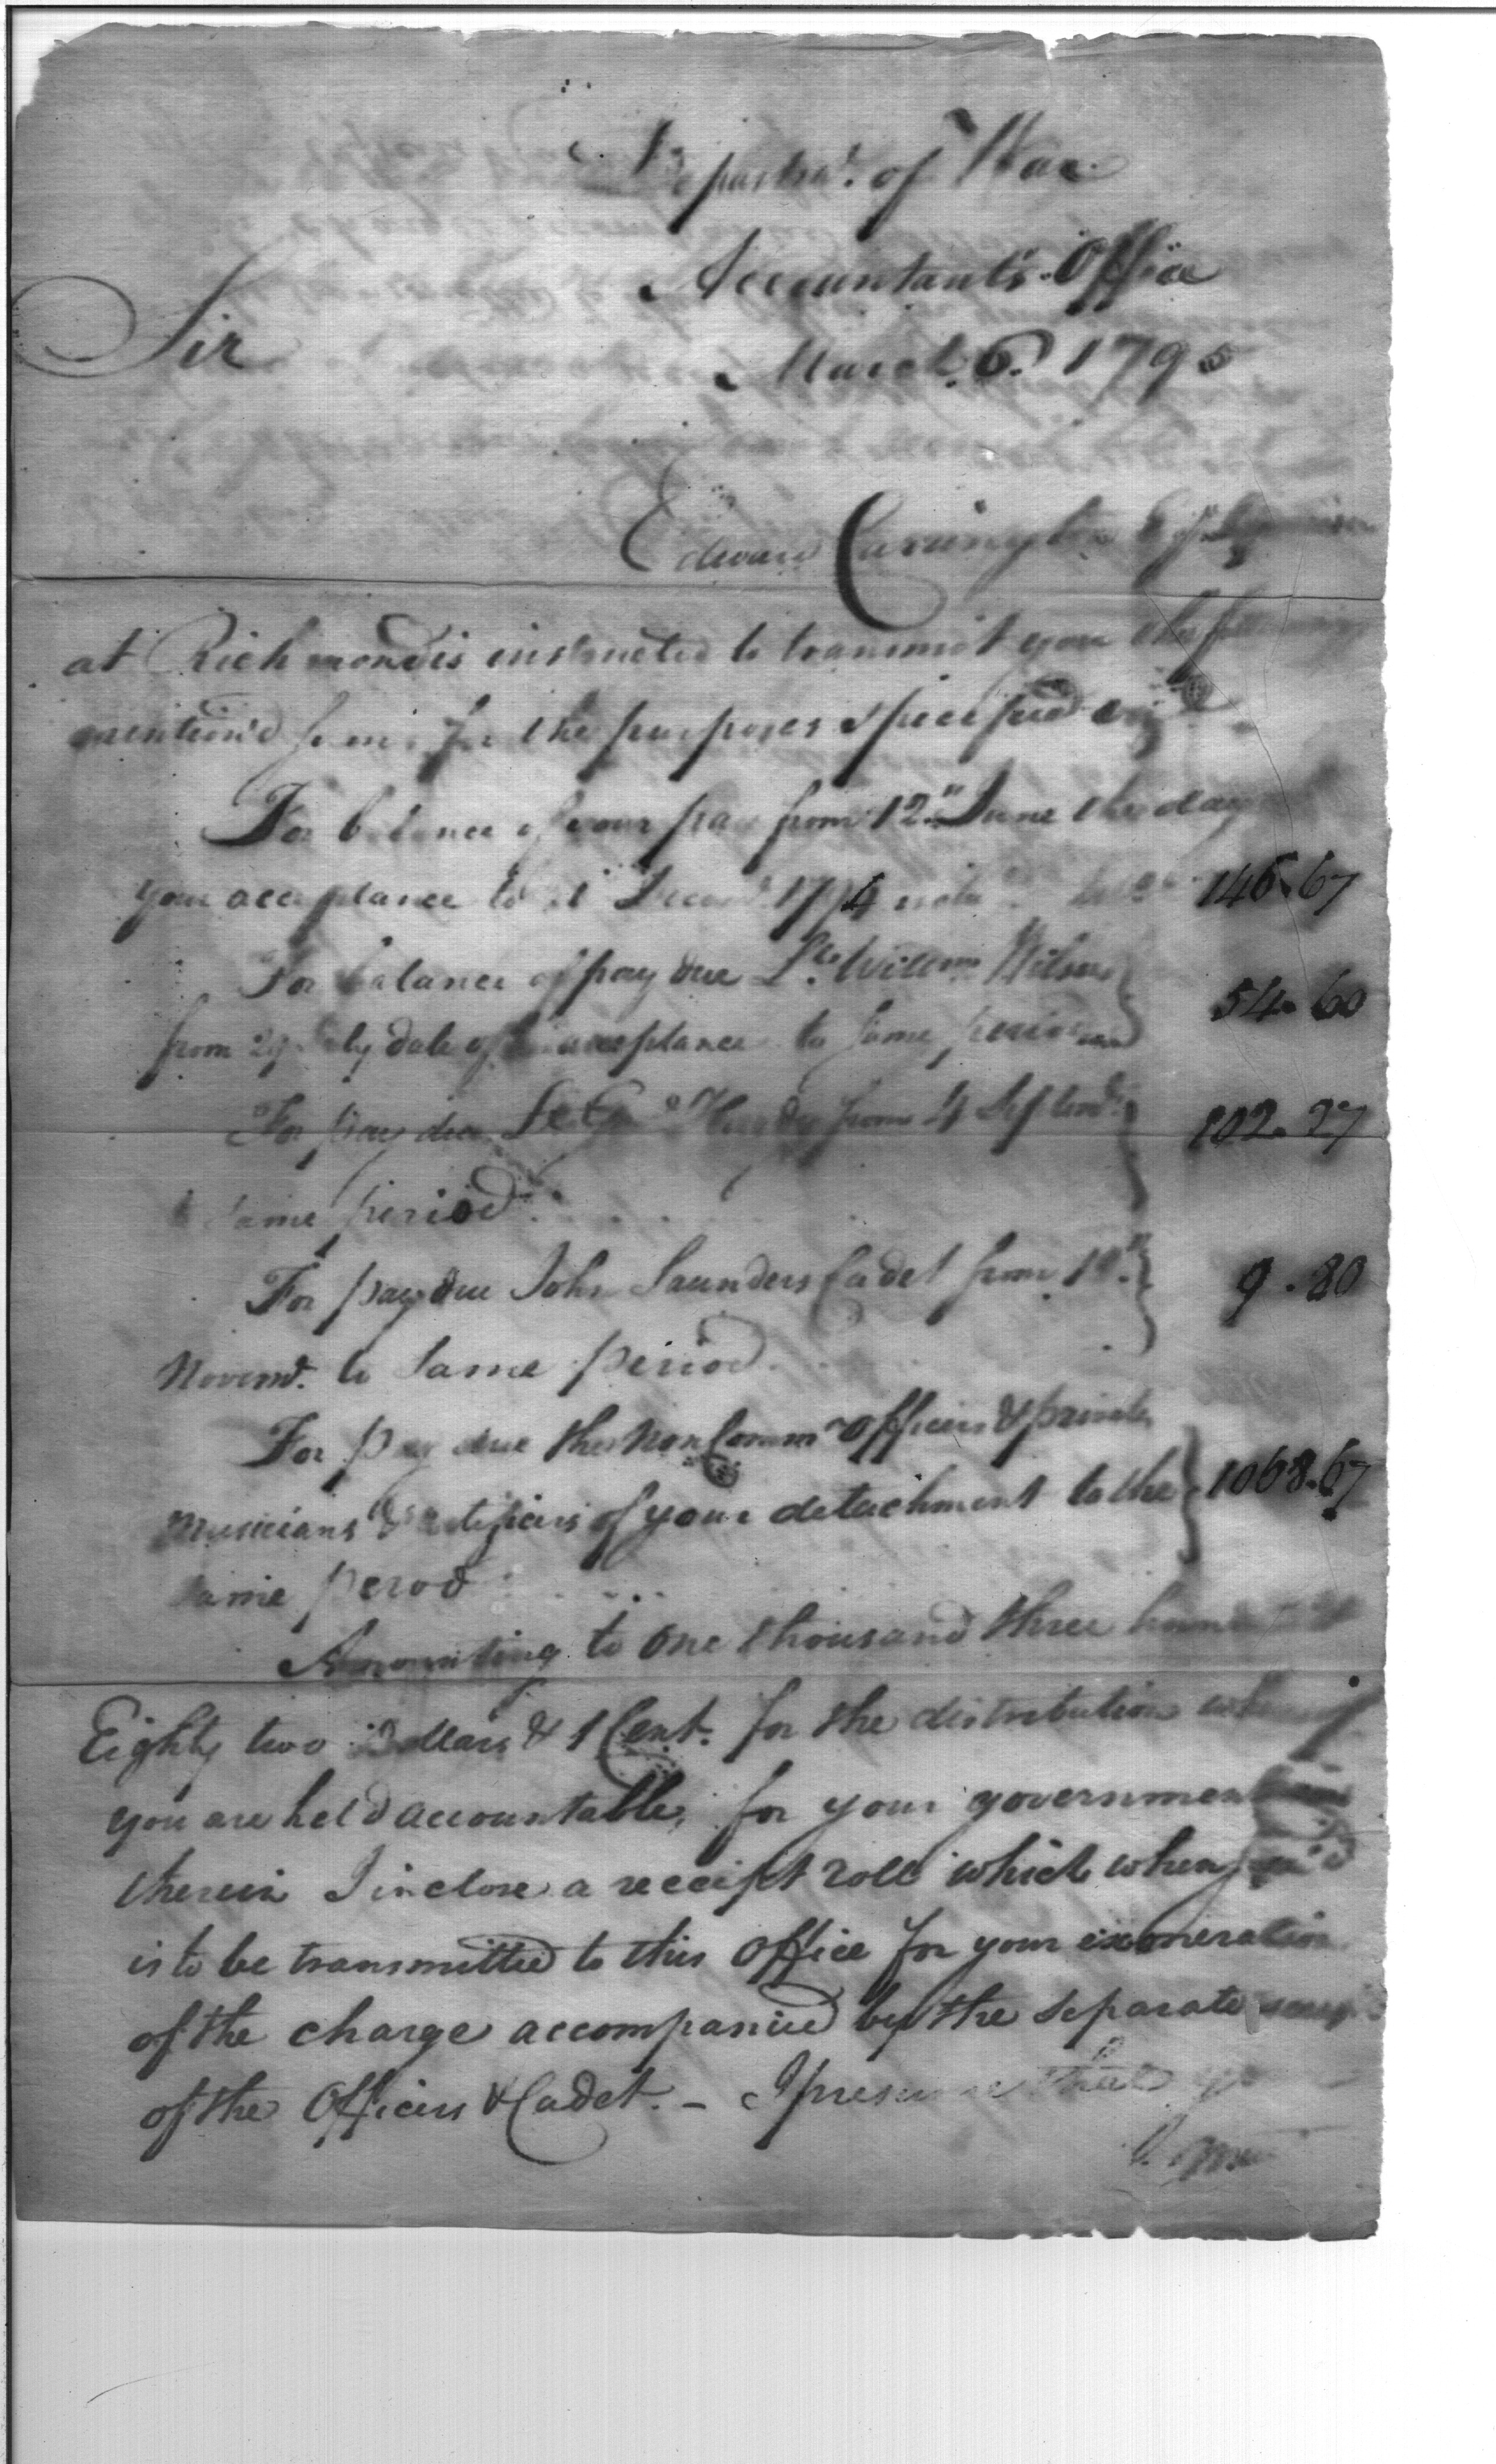 Departmt. of War
Accountant's Office
March 6. 1795
Sir
Edward Carrington Esqr.
at Richmond is instructed to transmit you the following
mention'd sums for the purposes specified viz
For balance of your pay from 12th June the day
your acceptance to 31 Decemr. 1794 146.67
For balance of pay due Lt. Willm Wilson
from 29 July date of his acceptance to same period 54.60
For pay due from 4 Septemr. 102.27
to same period
For pay due John Saunders Cadet from 12th 9.80
Novemr. to same period
For pay due the Non Commd Officers & privates
Musicians & artificers of your detachment to the 1068.67
same perod
Amounting to One thousand three hundred
Eighty two Dollars & 1 Cent. for the distribution whereof
you are held accountable, for your government
therein I inclose a receipt roll which when
is to be transmitted to this Office for your exoneration
of the charge accompanied by the separate
of the Officers & Cadet. – I presume that